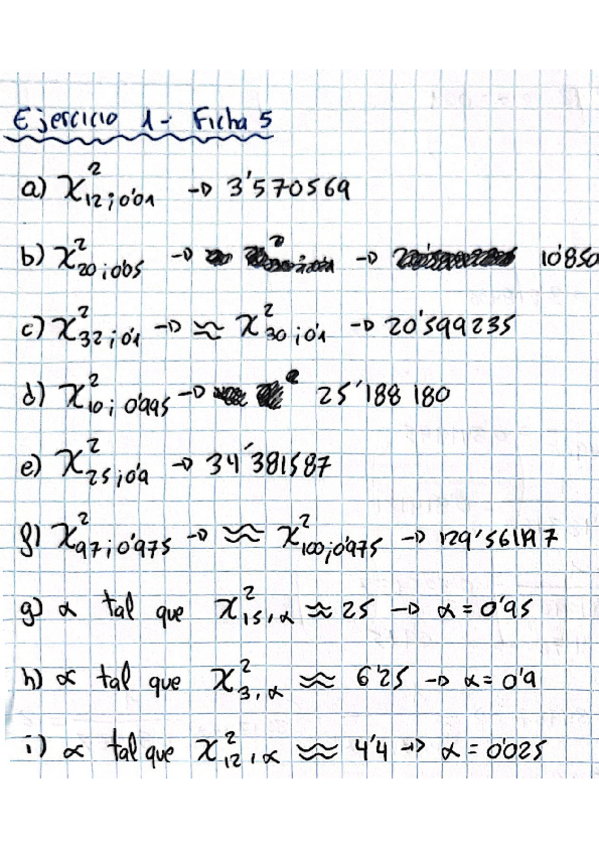 Ejercicio 1 - Ficha 5
a) χ²₁₂;₀'₀₁ → 3'570569
b) χ²₂₀;₀'₀₅ → → 10'850
c) χ²₃₂;₀'₁ → ≈ χ²₃₀;₀'₁ → 20'599235
d) χ²₁₀;₀'₉₉₅ → 25'188180
e) χ²₂₅;₀'₉ → 34'381587
f) χ²₉₇;₀'₉₇₅ → ≈ χ²₁₀₀;₀'₉₇₅ → 129'561197
g) α tal que χ²₁₅,α ≈ 25 → α = 0'95
h) α tal que χ²₃,α ≈ 6'25 → α = 0'9
i) α tal que χ²₁₂,α ≈ 4'4 → α = 0'025